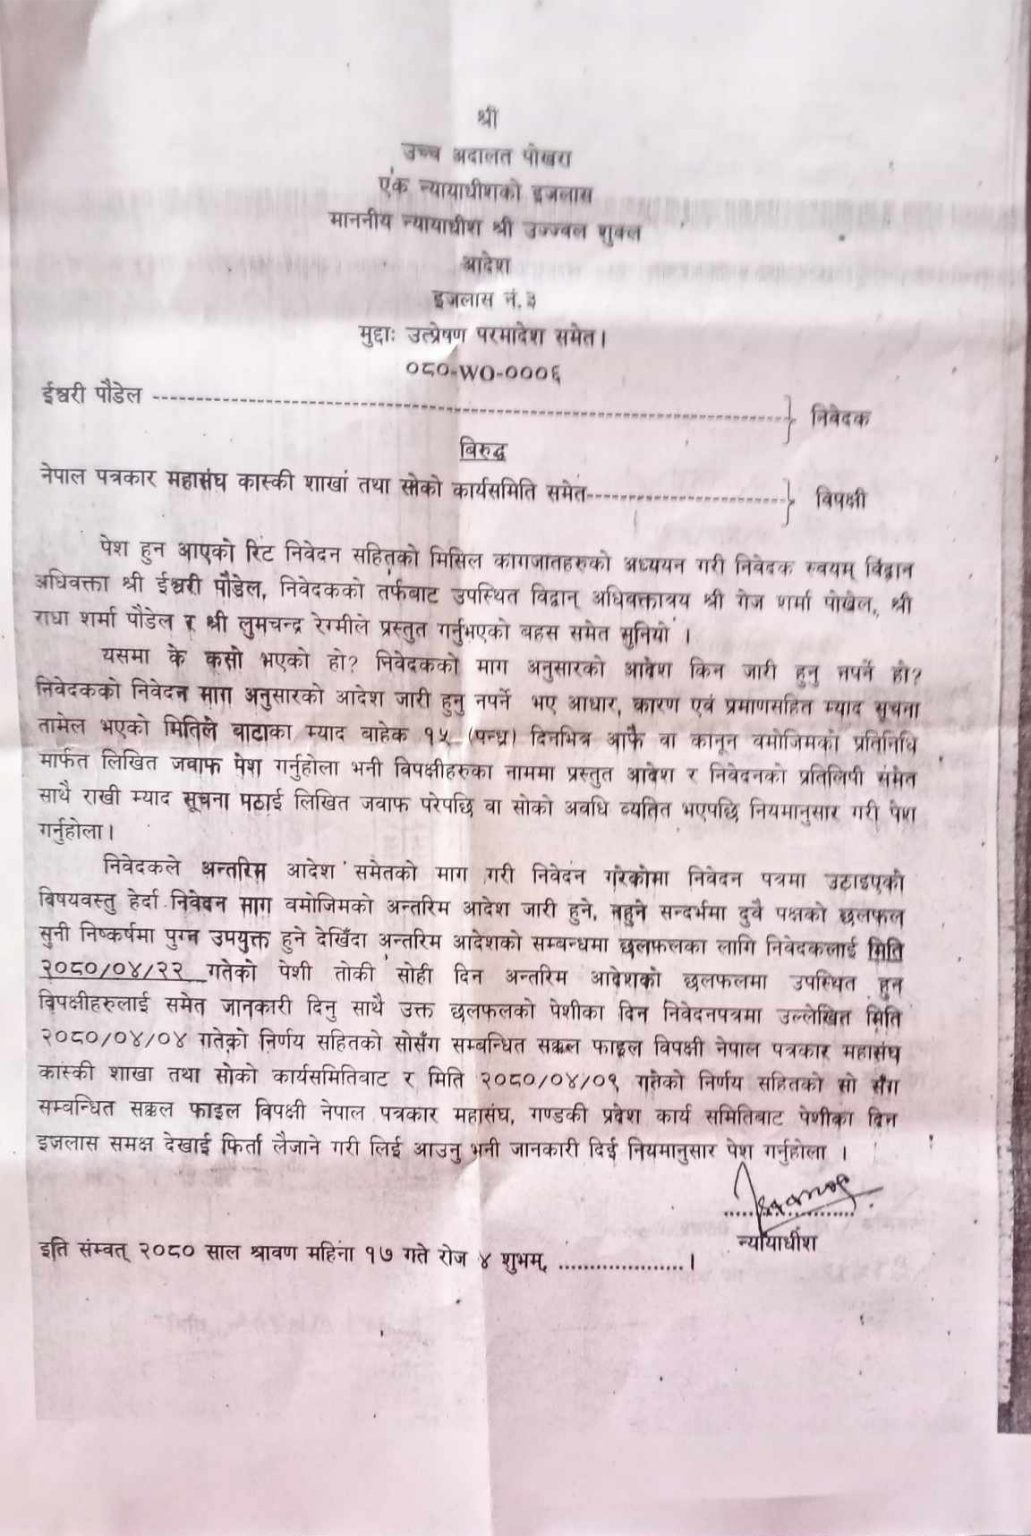 श्री
उच्च अदालत पोखरा
एक न्यायाधीशको इजलास
माननीय न्यायाधीश श्री उज्ज्वल शुक्ल
आदेश
इजलास नं.३
मुद्दाः उत्प्रेषण परमादेश समेत।
०८०-WO-०००६
ईश्वरी पौडेल ------------------------------------------------------------ निवेदक
बिरुद्ध
नेपाल पत्रकार महासंघ कास्की शाखा तथा सोको कार्यसमिति समेत------------------------ विपक्षी
पेश हुन आएको रिट निवेदन सहितको मिसिल कागजातहरुको अध्ययन गरी निवेदक स्वयम् विद्वान
अधिवक्ता श्री ईश्वरी पौडेल, निवेदकको तर्फबाट उपस्थित विद्वान् अधिवक्तात्रय श्री गेज शर्मा पोखेल, श्री
राधा शर्मा पौडेल र श्री लुमचन्द्र रेग्मीले प्रस्तुत गर्नुभएको बहस समेत सुनियो ।
यसमा के कसो भएको हो? निवेदकको माग अनुसारको आदेश किन जारी हुनु नपर्ने हो?
निवेदकको निवेदन माग अनुसारको आदेश जारी हुनु नपर्ने भए आधार, कारण एवं प्रमाणसहित म्याद सूचना
तामेल भएको मितिले बाटाका म्याद बाहेक १५ (पन्ध्र) दिनभित्र आफै वा कानून वमोजिमको प्रतिनिधि
मार्फत लिखित जवाफ पेश गर्नुहोला भनी विपक्षीहरुका नाममा प्रस्तुत आदेश र निवेदनको प्रतिलिपी समेत
साथै राखी म्याद सूचना पठाई लिखित जवाफ परेपछि वा सोको अवधि व्यतित भएपछि नियमानुसार गरी पेश
गर्नुहोला।
निवेदकले अन्तरिम आदेश समेतको माग गरी निवेदन गरेकोमा निवेदन पत्रमा उठाइएको
बिषयवस्तु हेर्दा निवेदन माग वमोजिमको अन्तरिम आदेश जारी हुने, नहुने सन्दर्भमा दुवै पक्षको छलफल
सुनी निष्कर्षमा पुग्न उपयुक्त हुने देखिँदा अन्तरिम आदेशको सम्बन्धमा छलफलका लागि निवेदकलाई मिति
२०८०/०४/२२ गतेको पेशी तोकी सोही दिन अन्तरिम आदेशको छलफलमा उपस्थित हुन
विपक्षीहरुलाई समेत जानकारी दिनु साथै उक्त छलफलको पेशीका दिन निवेदनपत्रमा उल्लेखित मिति
२०८०/०४/०४ गतेको निर्णय सहितको सोसँग सम्बन्धित सक्कल फाइल विपक्षी नेपाल पत्रकार महासंघ
कास्की शाखा तथा सोको कार्यसमितिबाट र मिति २०८०/०४/०९ गतेको निर्णय सहितको सो सँग
सम्बन्धित सक्कल फाइल विपक्षी नेपाल पत्रकार महासंघ, गण्डकी प्रदेश कार्य समितिबाट पेशीका दिन
इजलास समक्ष देखाई फिर्ता लैजाने गरी लिई आउनु भनी जानकारी दिई नियमानुसार पेश गर्नुहोला ।
न्यायाधीश
इति सम्वत् २०८० साल श्रावण महिना १७ गते रोज ४ शुभम् ....................।